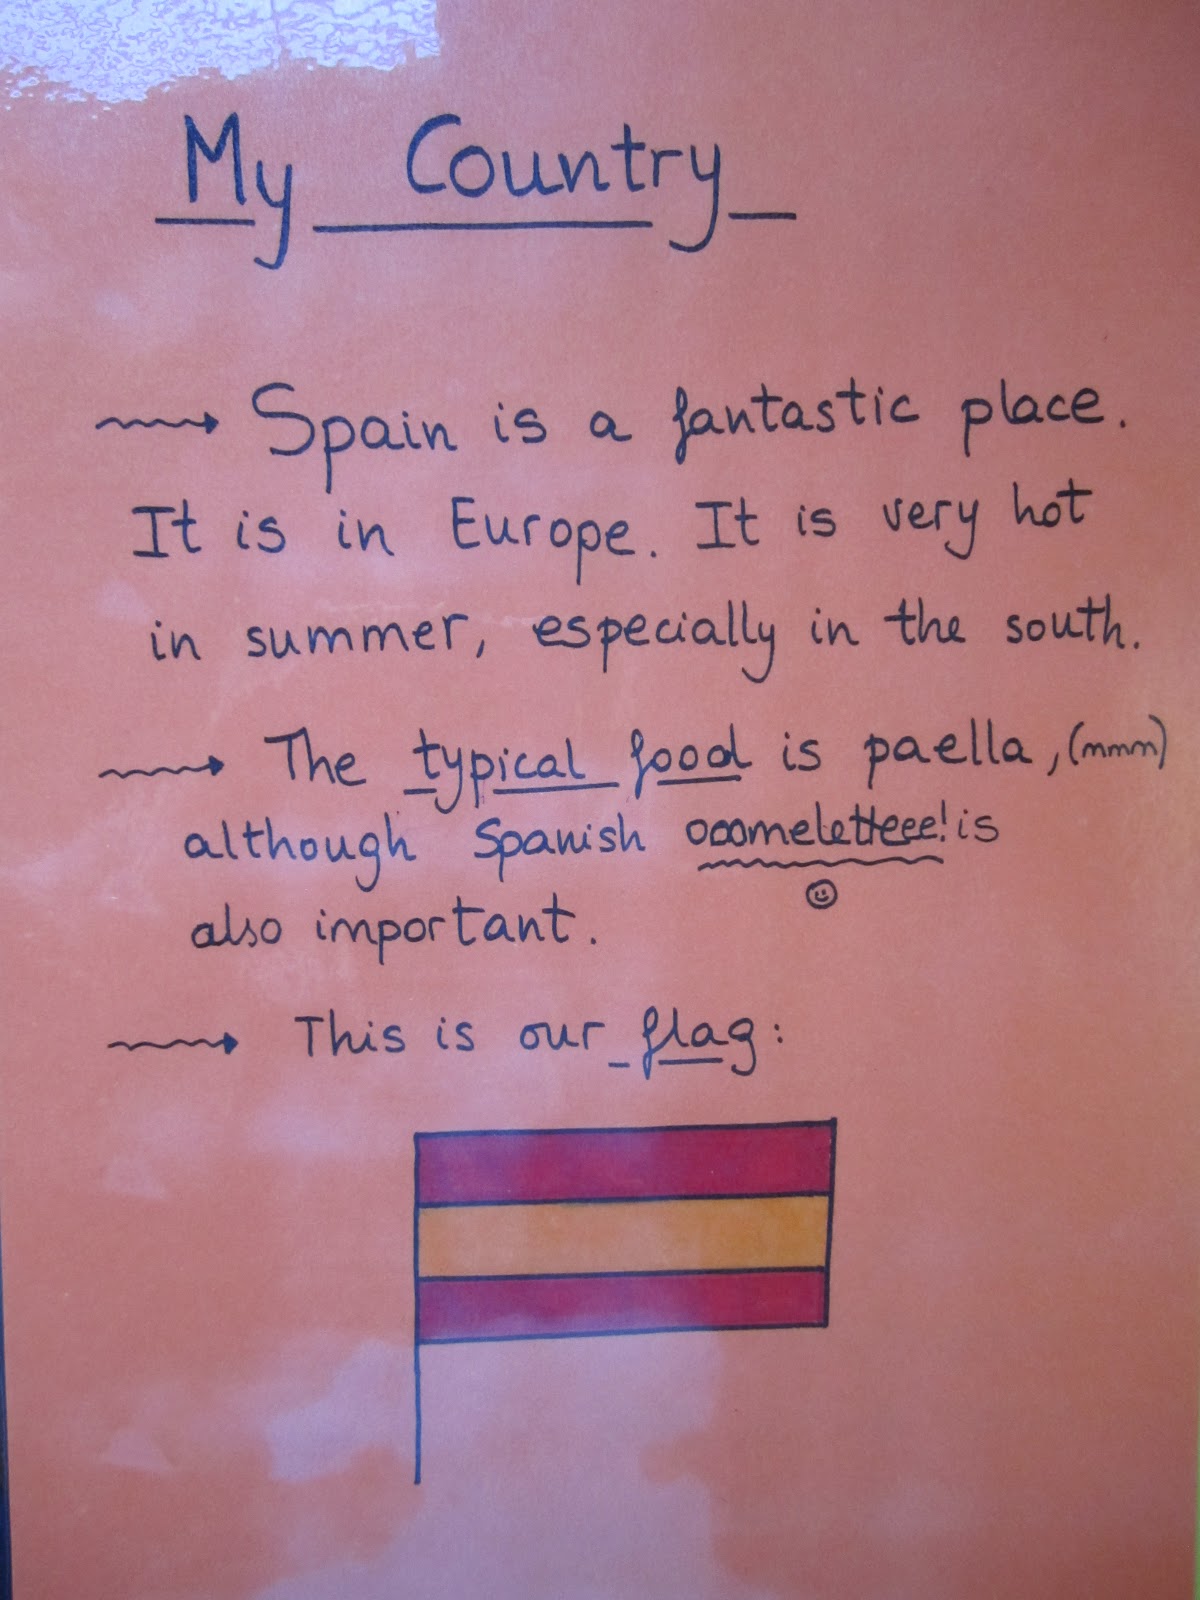 My Country
Spain is a fantastic place.
It is in Europe. It is very hot
in summer, especially in the south.
The typical food is paella, (mmm)
although Spanish ooomeletteee! is
also important.
This is our flag: